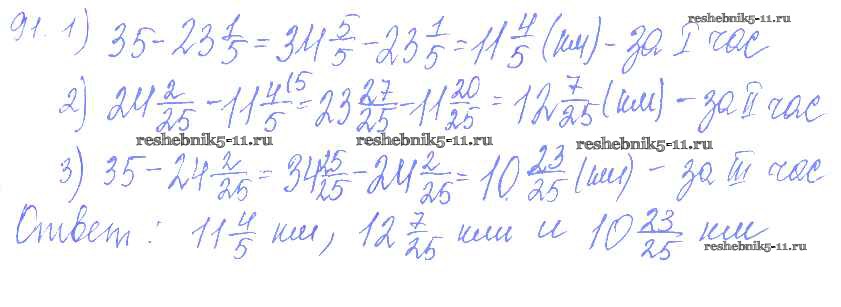 reshebnik5-11.ru
91. 1) 35 - 23 1/5 = 34 5/5 - 23 1/5 = 11 4/5 (км) - за I час
2) 24 2/25 - 11 4/5 (5 = 23 27/25 - 11 20/25 = 12 7/25 (км) - за II час
reshebnik5-11.ru reshebnik5-11.ru
3) 35 - 24 2/25 = 34 25/25 - 24 2/25 = 10 23/25 (км) - за III час
Ответ: 11 4/5 км, 12 7/25 км и 10 23/25 км
reshebnik5-11.ru